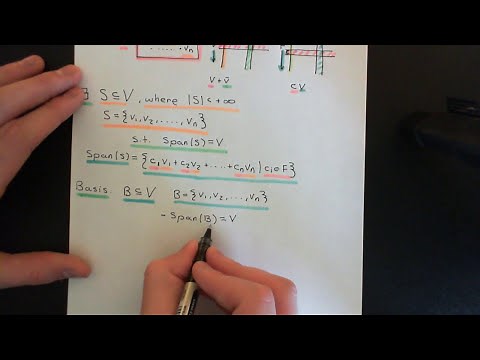 . . . . , vn
V + V̄
cV
∃ S ⊆ V, where |S| < +∞
S = {v1, v2, ...., vn}
s.t. span(S) = V
Span(S) = {c1v1 + c2v2 + .... + cnvn | ci ∈ F}
Basis. B ⊆ V B = {v1, v2, ..., vn}
- Span(B) = V